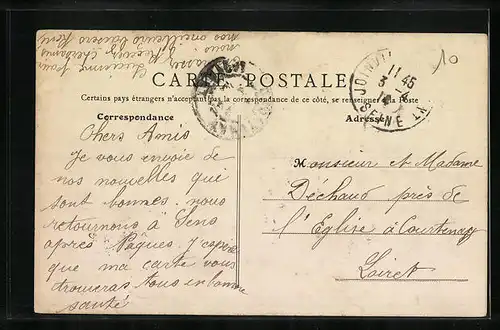 CARTE POSTALE
Certains pays étrangers n'acceptant pas la correspondance de ce côté, se renseigner à la Poste
Correspondance
Adresse
Chers Amis
Je vous envoie de
nos nouvelles qui
sont bonnes. nous
retournons à Sens
après Pâques J'espère
que ma carte vous
trouveras tous en bonne
santé
Monsieur et Madame
Déchaud près de
l'Eglise à Courtenay
Loiret
10
JOINVILLE
11 45
3 -4
SEINE
nous
Recevez
nos meilleurs baisers